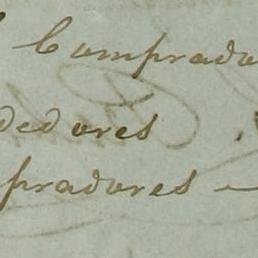 Comprado
dedores
pradores —